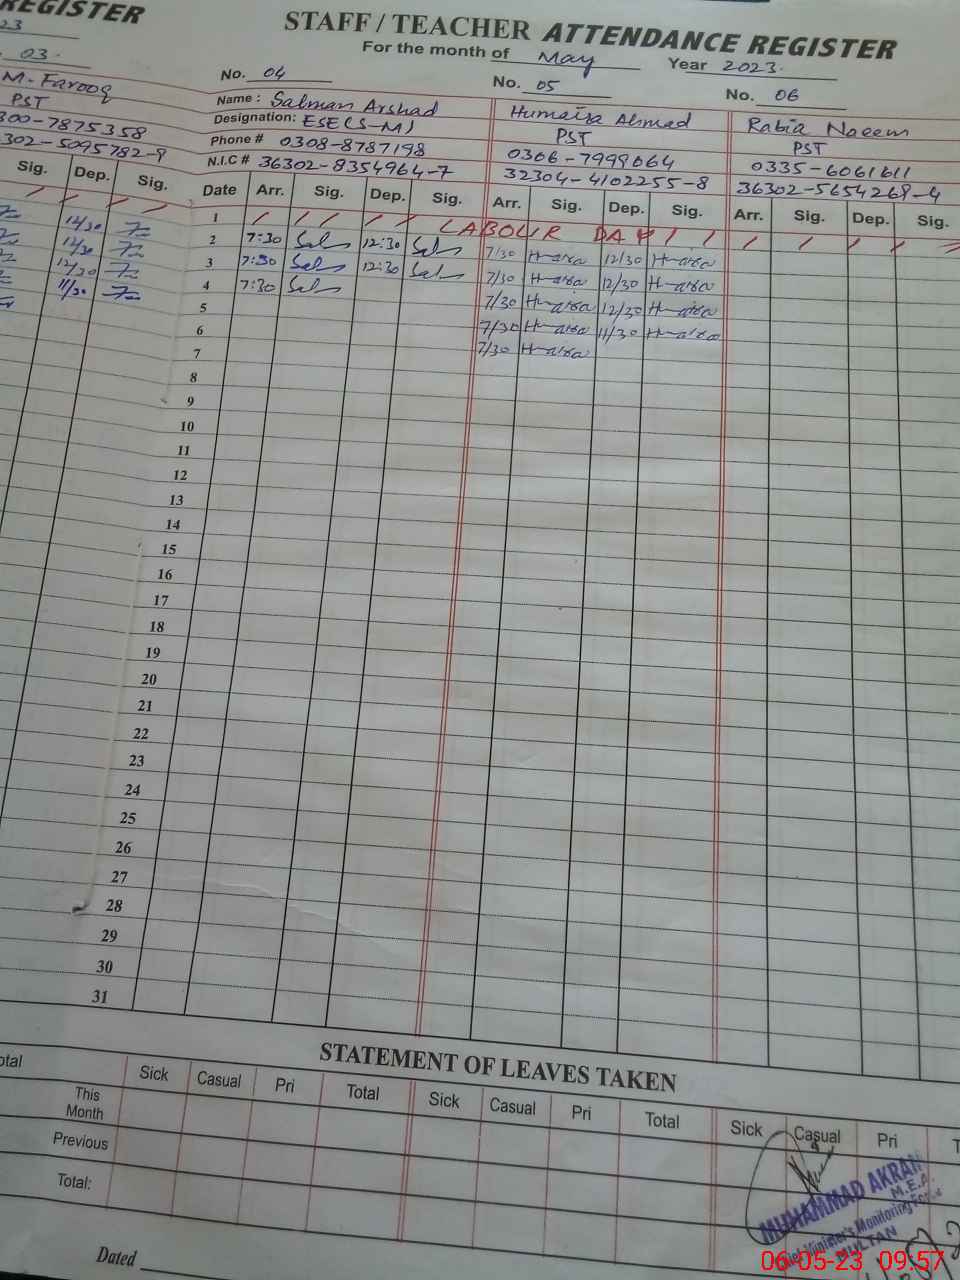 REGISTER
STAFF / TEACHER ATTENDANCE REGISTER
For the month of May Year 2023.
03.
No. 04
No. 05
No. 06
M. Farooq
PST
300-7875358
302-5095782-9
Name: Salman Arshad
Designation: ESE(S-M)
Phone # 0308-8787198
N.I.C # 36302-8354964-7
Humaira Ahmad
PST
0306-7999064
32304-4102255-8
Rabia Naeem
PST
0335-6061611
36302-5654269-4
Sig. Dep. Sig.
Date Arr. Sig. Dep. Sig. Arr. Sig. Dep. Sig. Arr. Sig. Dep. Sig.
1 LABOUR DAY
12/30
2 7:30 Sal 12:30 Sal 7/30 12/30
12/30
3 7:30 Sal 12:30 Sal 7/30 12/30
12/30
4 7:30 Sal 7/30 12/30
11/30
5 7/30 11/30
6 7/30
7
8
9
10
11
12
13
14
15
16
17
18
19
20
21
22
23
24
25
26
27
28
29
30
31
STATEMENT OF LEAVES TAKEN
Sick Casual Pri Total Sick Casual Pri Total Sick Casual Pri
This Month
Previous
Total:
Dated
MUHAMMAD AKRAM
M.E.A.
Chief Minister's Monitoring Force
MULTAN
06-05-23 09:57